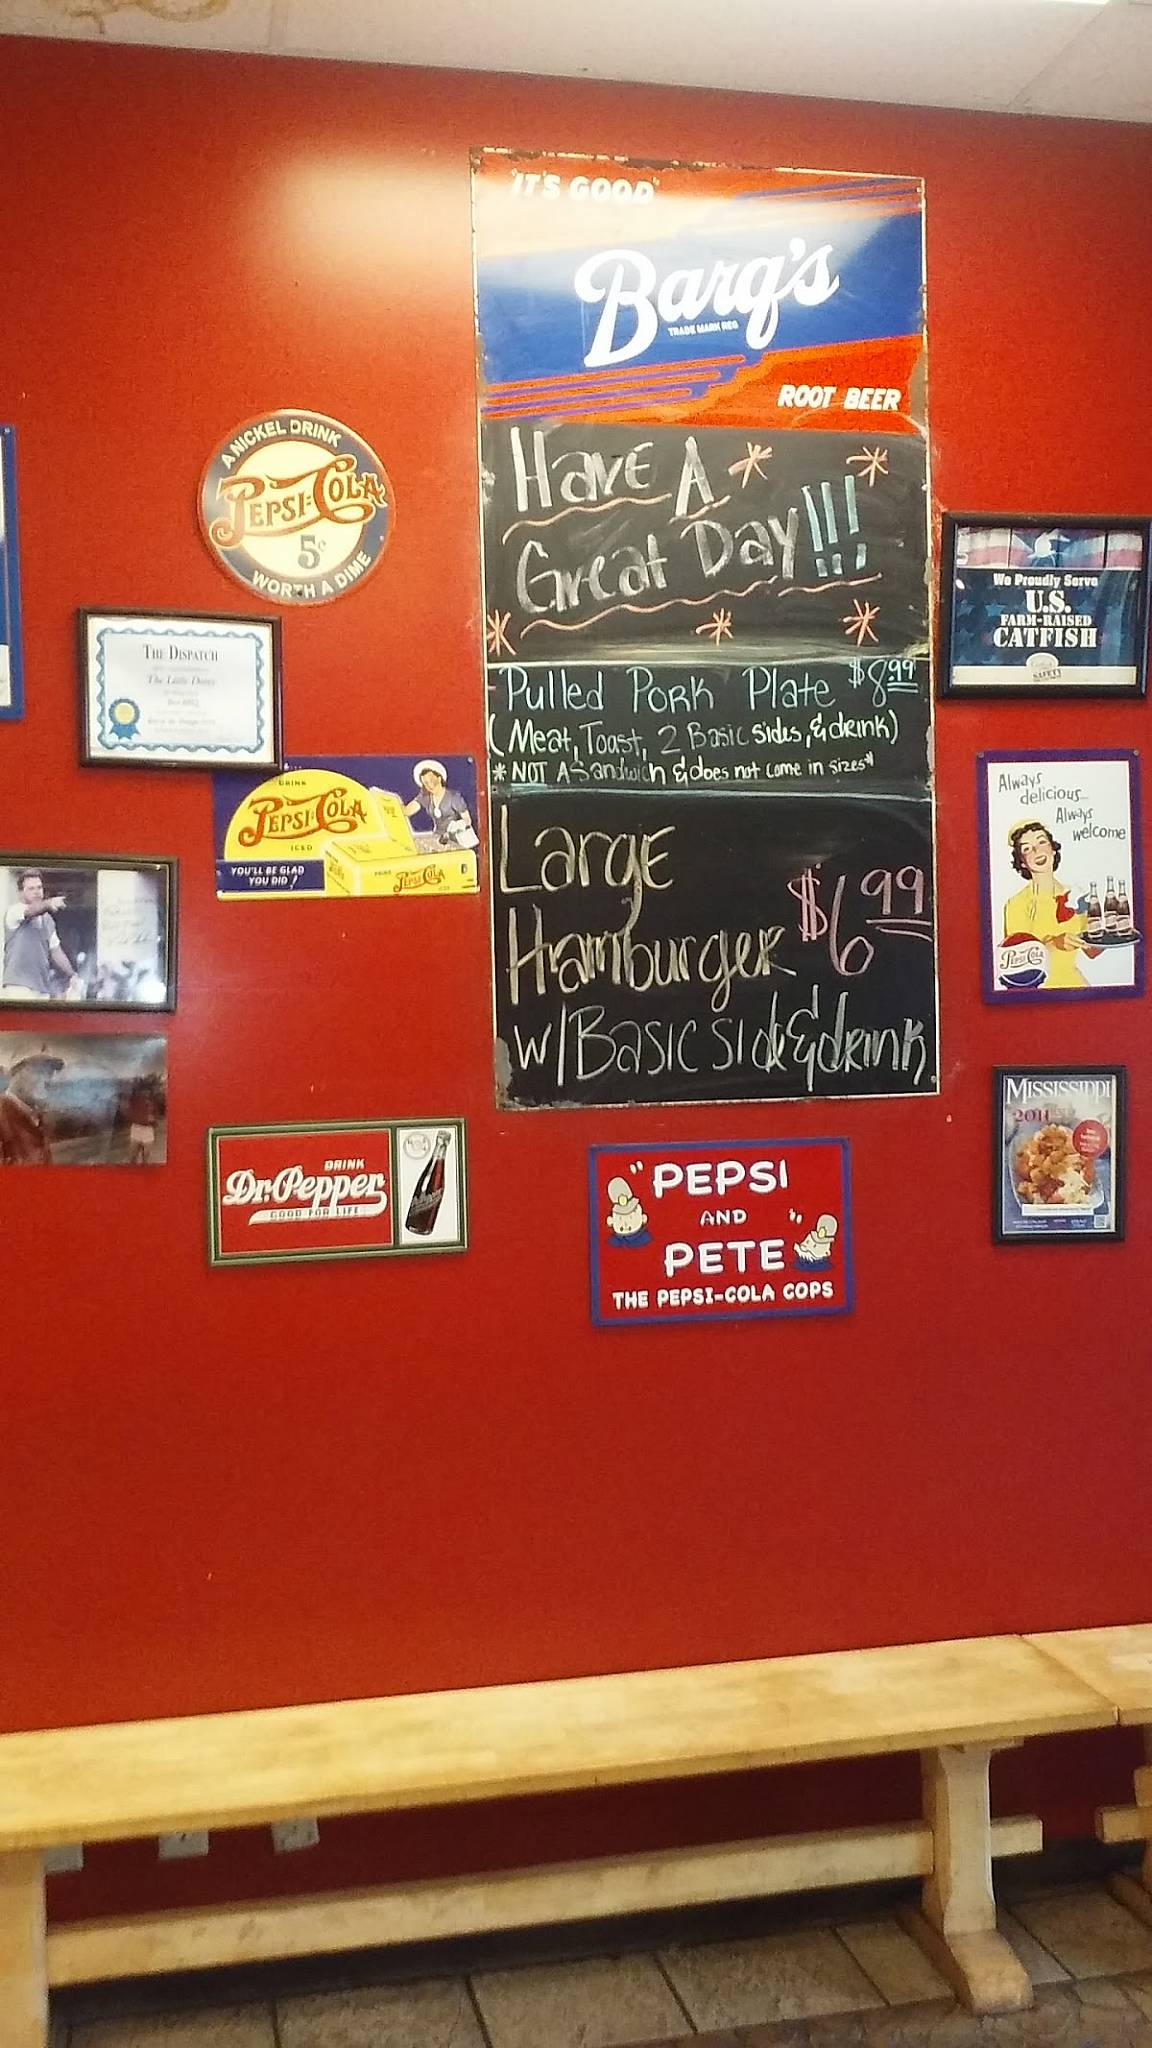 "IT'S GOOD"
Barq's
TRADE MARK REG
ROOT BEER
Have A
Great Day!!!
Pulled Pork Plate $8.99
(Meat, Toast, 2 Basic sides, & drink)
*NOT A Sandwich & does not come in sizes*
Large
Hamburger $6.99
w/Basic side & drink
A NICKEL DRINK
PEPSI=COLA
5¢
WORTH A DIME
THE DISPATCH
The Little Dooey
DRINK
PEPSI=COLA
ICED
YOU'LL BE GLAD
YOU DID!
PEPSI=COLA
DRINK
Dr. Pepper
GOOD FOR LIFE
"PEPSI
AND
PETE"
THE PEPSI-COLA COPS
We Proudly Serve
U.S.
FARM-RAISED
CATFISH
SAFETY
Always
delicious...
Always
welcome
PEPSI-COLA
MISSISSIPPI
2011